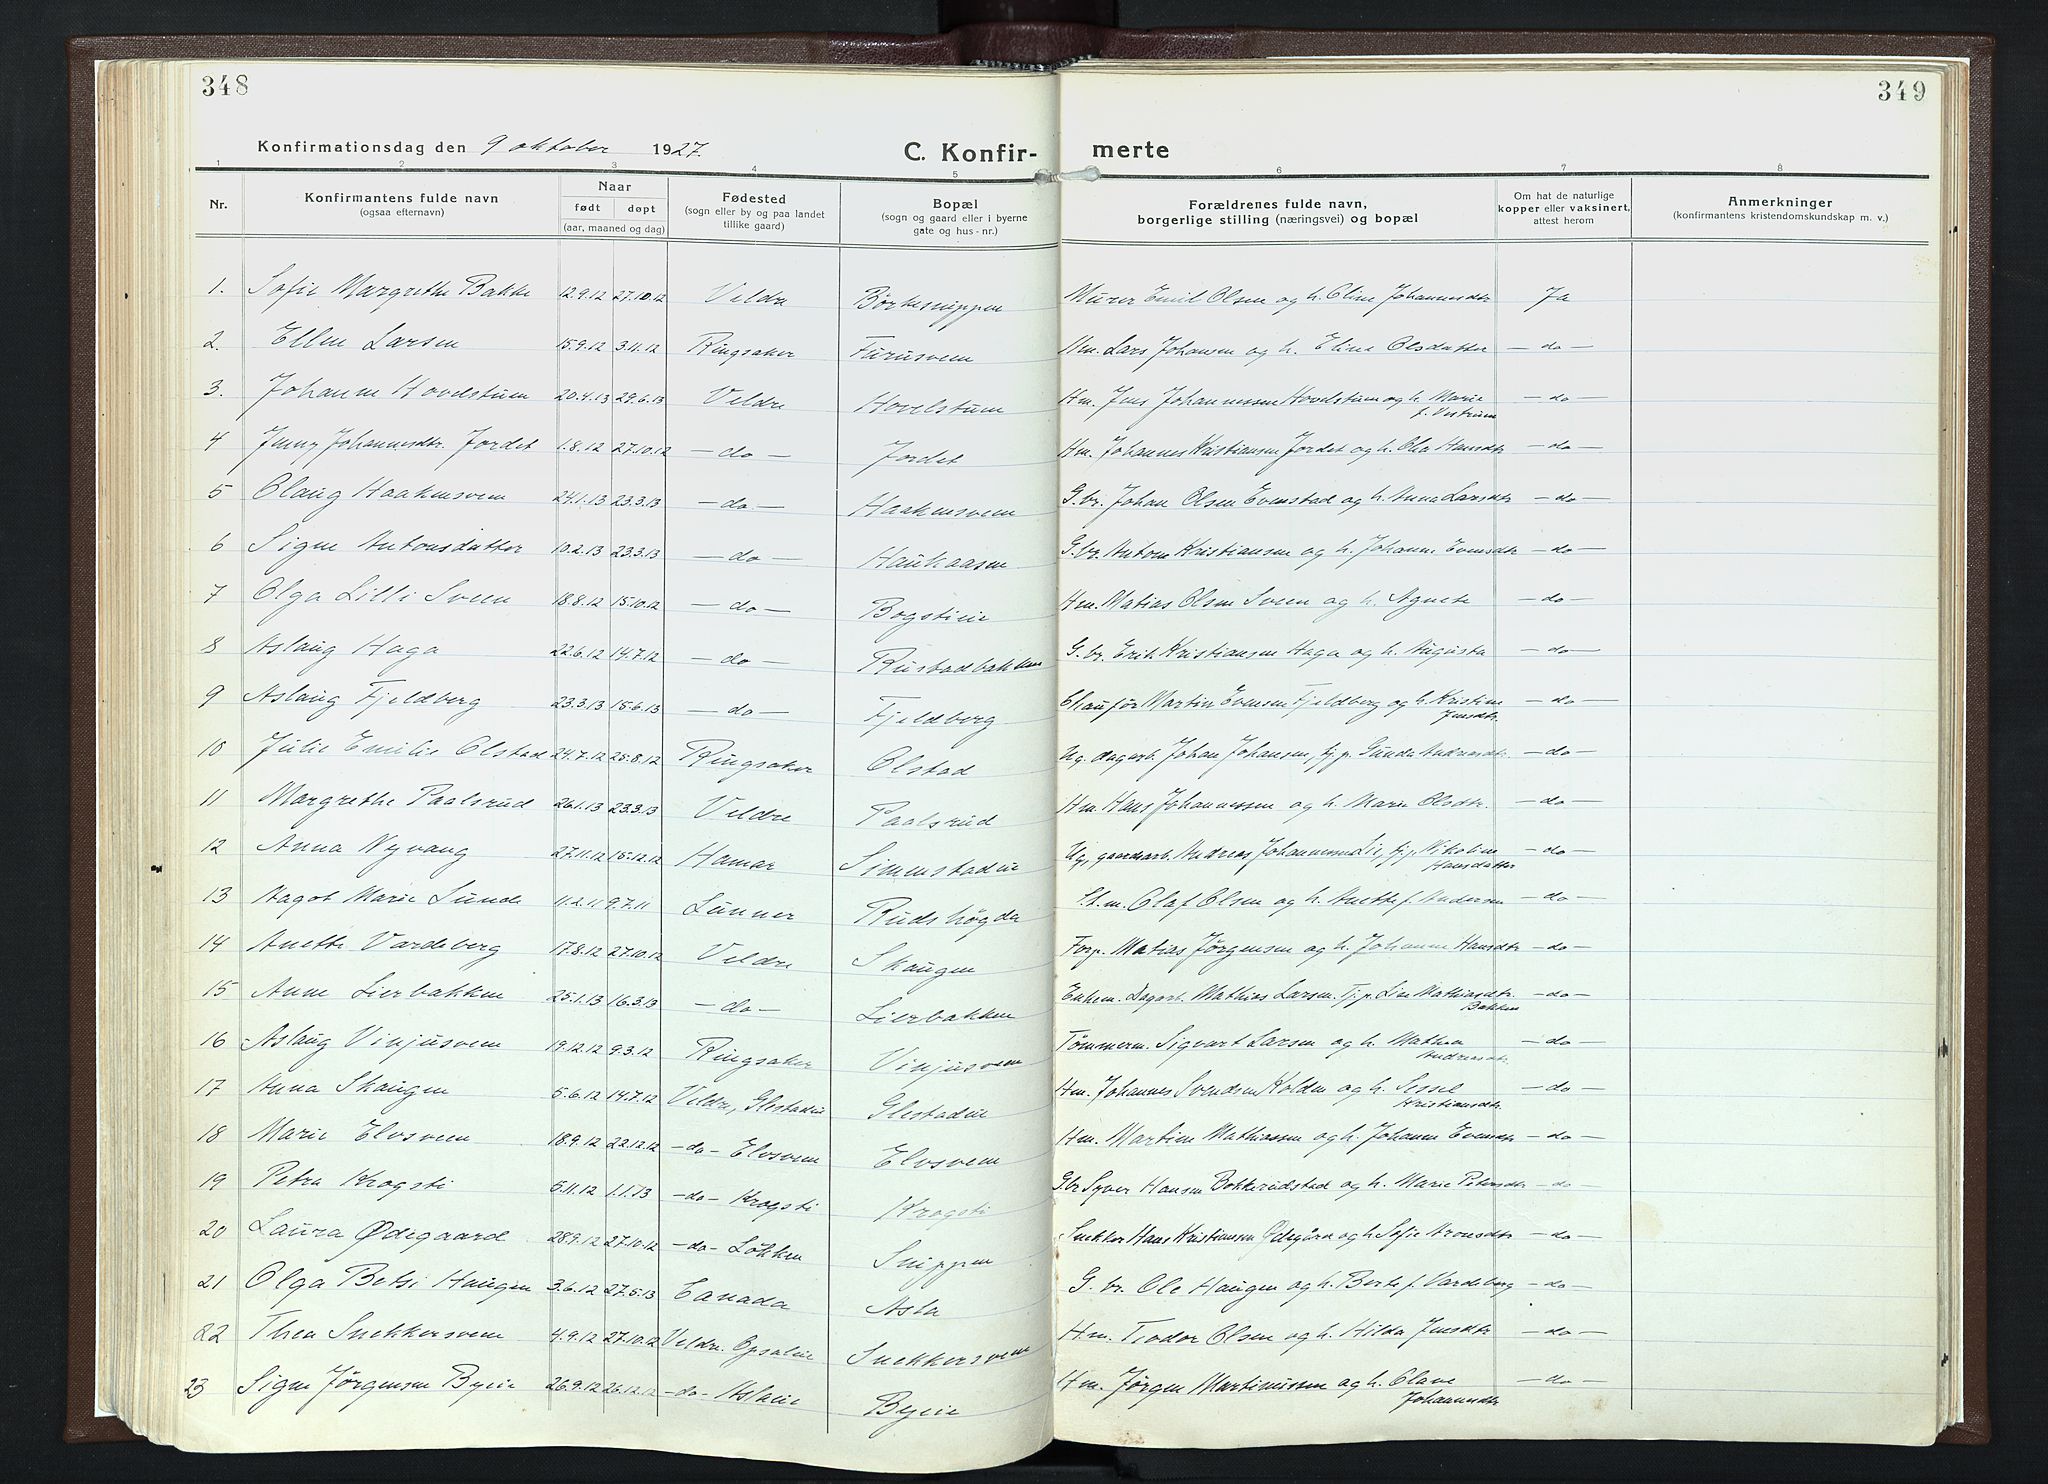 348
349
Konfirmationsdag den 9 oktober 1927.
C. Konfir- merte
1 2 3 4 5 6 7 8
Nr.
Konfirmantens fulde navn
(ogsaa efternavn)
Naar
født døpt
(aar, maaned og dag)
Fødested
(sogn eller by og paa landet
tillike gaard)
Bopæl
(sogn og gaard eller i byerne
gate og hus-nr.)
Forældrenes fulde navn,
borgerlige stilling (næringsvei) og bopæl
Om hat de naturlige
kopper eller vaksinert,
attest herom
Anmerkninger
(konfirmantens kristendomskundskap m. v.)
1. Sofie Margrethe Bakke 12.9.12 27.10.12 Veldre Børkesnippen Murer Emil Olsen og h. Oline Johannesdtr Ja
2. Ellen Larsen 15.9.12 3.11.12 Ringsaker Furusveen Hm. Lars Johansen og h. Eline Olsdatter — do —
3. Johanne Hovelstuen 20.4.13 29.6.13 Veldre Hovelstuen Hm. Jens Johannessen Hovelstuen og h. Marie — do —
f. Vestrum
4 Jenny Johannesdtr. Jordet 1.8.12 27.10.12 — do — Jordet Hm. Johannes Kristiansen Jordet og h. Olea Hansdtr — do —
5 Olaug Haakensveen 24.1.13 23.3.13 — do — Haakensveen G.br. Johan Olsen Evenstad og h. Anna Larsdtr — do —
6 Signe Antonsdatter 10.2.13 23.3.13 — do — Haukaasen G.br. Anton Kristiansen og h. Johanne Evensdtr — do —
7 Olga Lilli Sveen 18.8.12 15.10.12 — do — Bogstieie Hm. Matias Olsen Sveen og h. Agnete — do —
8 Aslaug Haga 22.6.12 14.7.12 — do — Rustadbakken G.br. Erik Kristiansen Haga og h. Augusta — do —
9 Aslaug Fjeldberg 23.3.13 15.6.13 — do — Fjeldberg Chauffør Martin Evensen Fjeldberg og h. Kristine — do —
Jensdtr.
10 Julie Emilie Olstad 24.7.12 25.8.12 Ringsaker Olstad Ug. dagarb. Johan Johansen, tj.p. Gunda Andreasdtr — do —
11 Margrethe Paalsrud 26.1.13 23.3.13 Veldre Paalsrud Hm. Hans Johannessen og h. Marie Olsdtr. — do —
12 Anna Nyvang 27.11.12 15.12.12 Hamar Simenstadeie Ug. gaardsarb. Andreas Johannessen Lie, tj.p. Nikoline — do —
Hansdatter
13 Aagot Marie Lunde 11.2.11 9.7.11 Lunner Rudshøgda St.m. Olaf Olsen og h. Anette f. Andersen — do —
14 Anette Vardeberg 17.8.12 27.10.12 Veldre Skaugen Forp. Matias Jørgensen og h. Johanne Hansdtr — do —
15 Anne Lierbakken 25.1.13 16.3.13 — do — Lierbakken Enkem. Dagarb. Mathias Larsen. Tj.p. Line Mathiasdtr. — do —
Bakken
16 Aslaug Vinjusveen 19.12.12 9.3.12 Ringsaker Vinjusveen Tømmerm. Sigvart Larsen og h. Mathea — do —
Andreasdtr.
17 Anna Skaugen 5.6.12 14.7.12 Veldre, Glestadeie Glestadeie Hm. Johannes Svendsen Kolden og h. Sessel — do —
Kristiansdtr.
18 Marie Elvsveen 18.9.12 22.12.12 — do — Elvsveen Elvsveen Hm. Martin Mathiassen og h. Johanne Evensdtr — do —
19 Petra Krogsti 5.11.12 1.1.13 — do — Krogsti Krogsti Gbr Syver Hansen Bakkerudstad og h. Marie Petersdtr — do —
20 Laura Ødegaard 28.9.12 27.10.12 — do — Løkken Snippen Snekker Hans Kristiansen Ødegård og h. Sofie Aronsdtr — do —
21 Olga Betsi Haugen 3.6.12 27.5.13 Canada Asla G.br. Ole Haugen og h. Berte f. Vardeberg — do —
22 Thea Snekkersveen 4.9.12 27.10.12 Veldre. Opsaleie Snekkersveen Hm. Teodor Olsen og h. Hilda Jensdtr — do —
23 Signe Jørgensen Byeie 26.9.12 26.12.12 — do — Aslaeie Byeie Hm. Jørgen Martinussen og h. Olave — do —
Johannesdtr